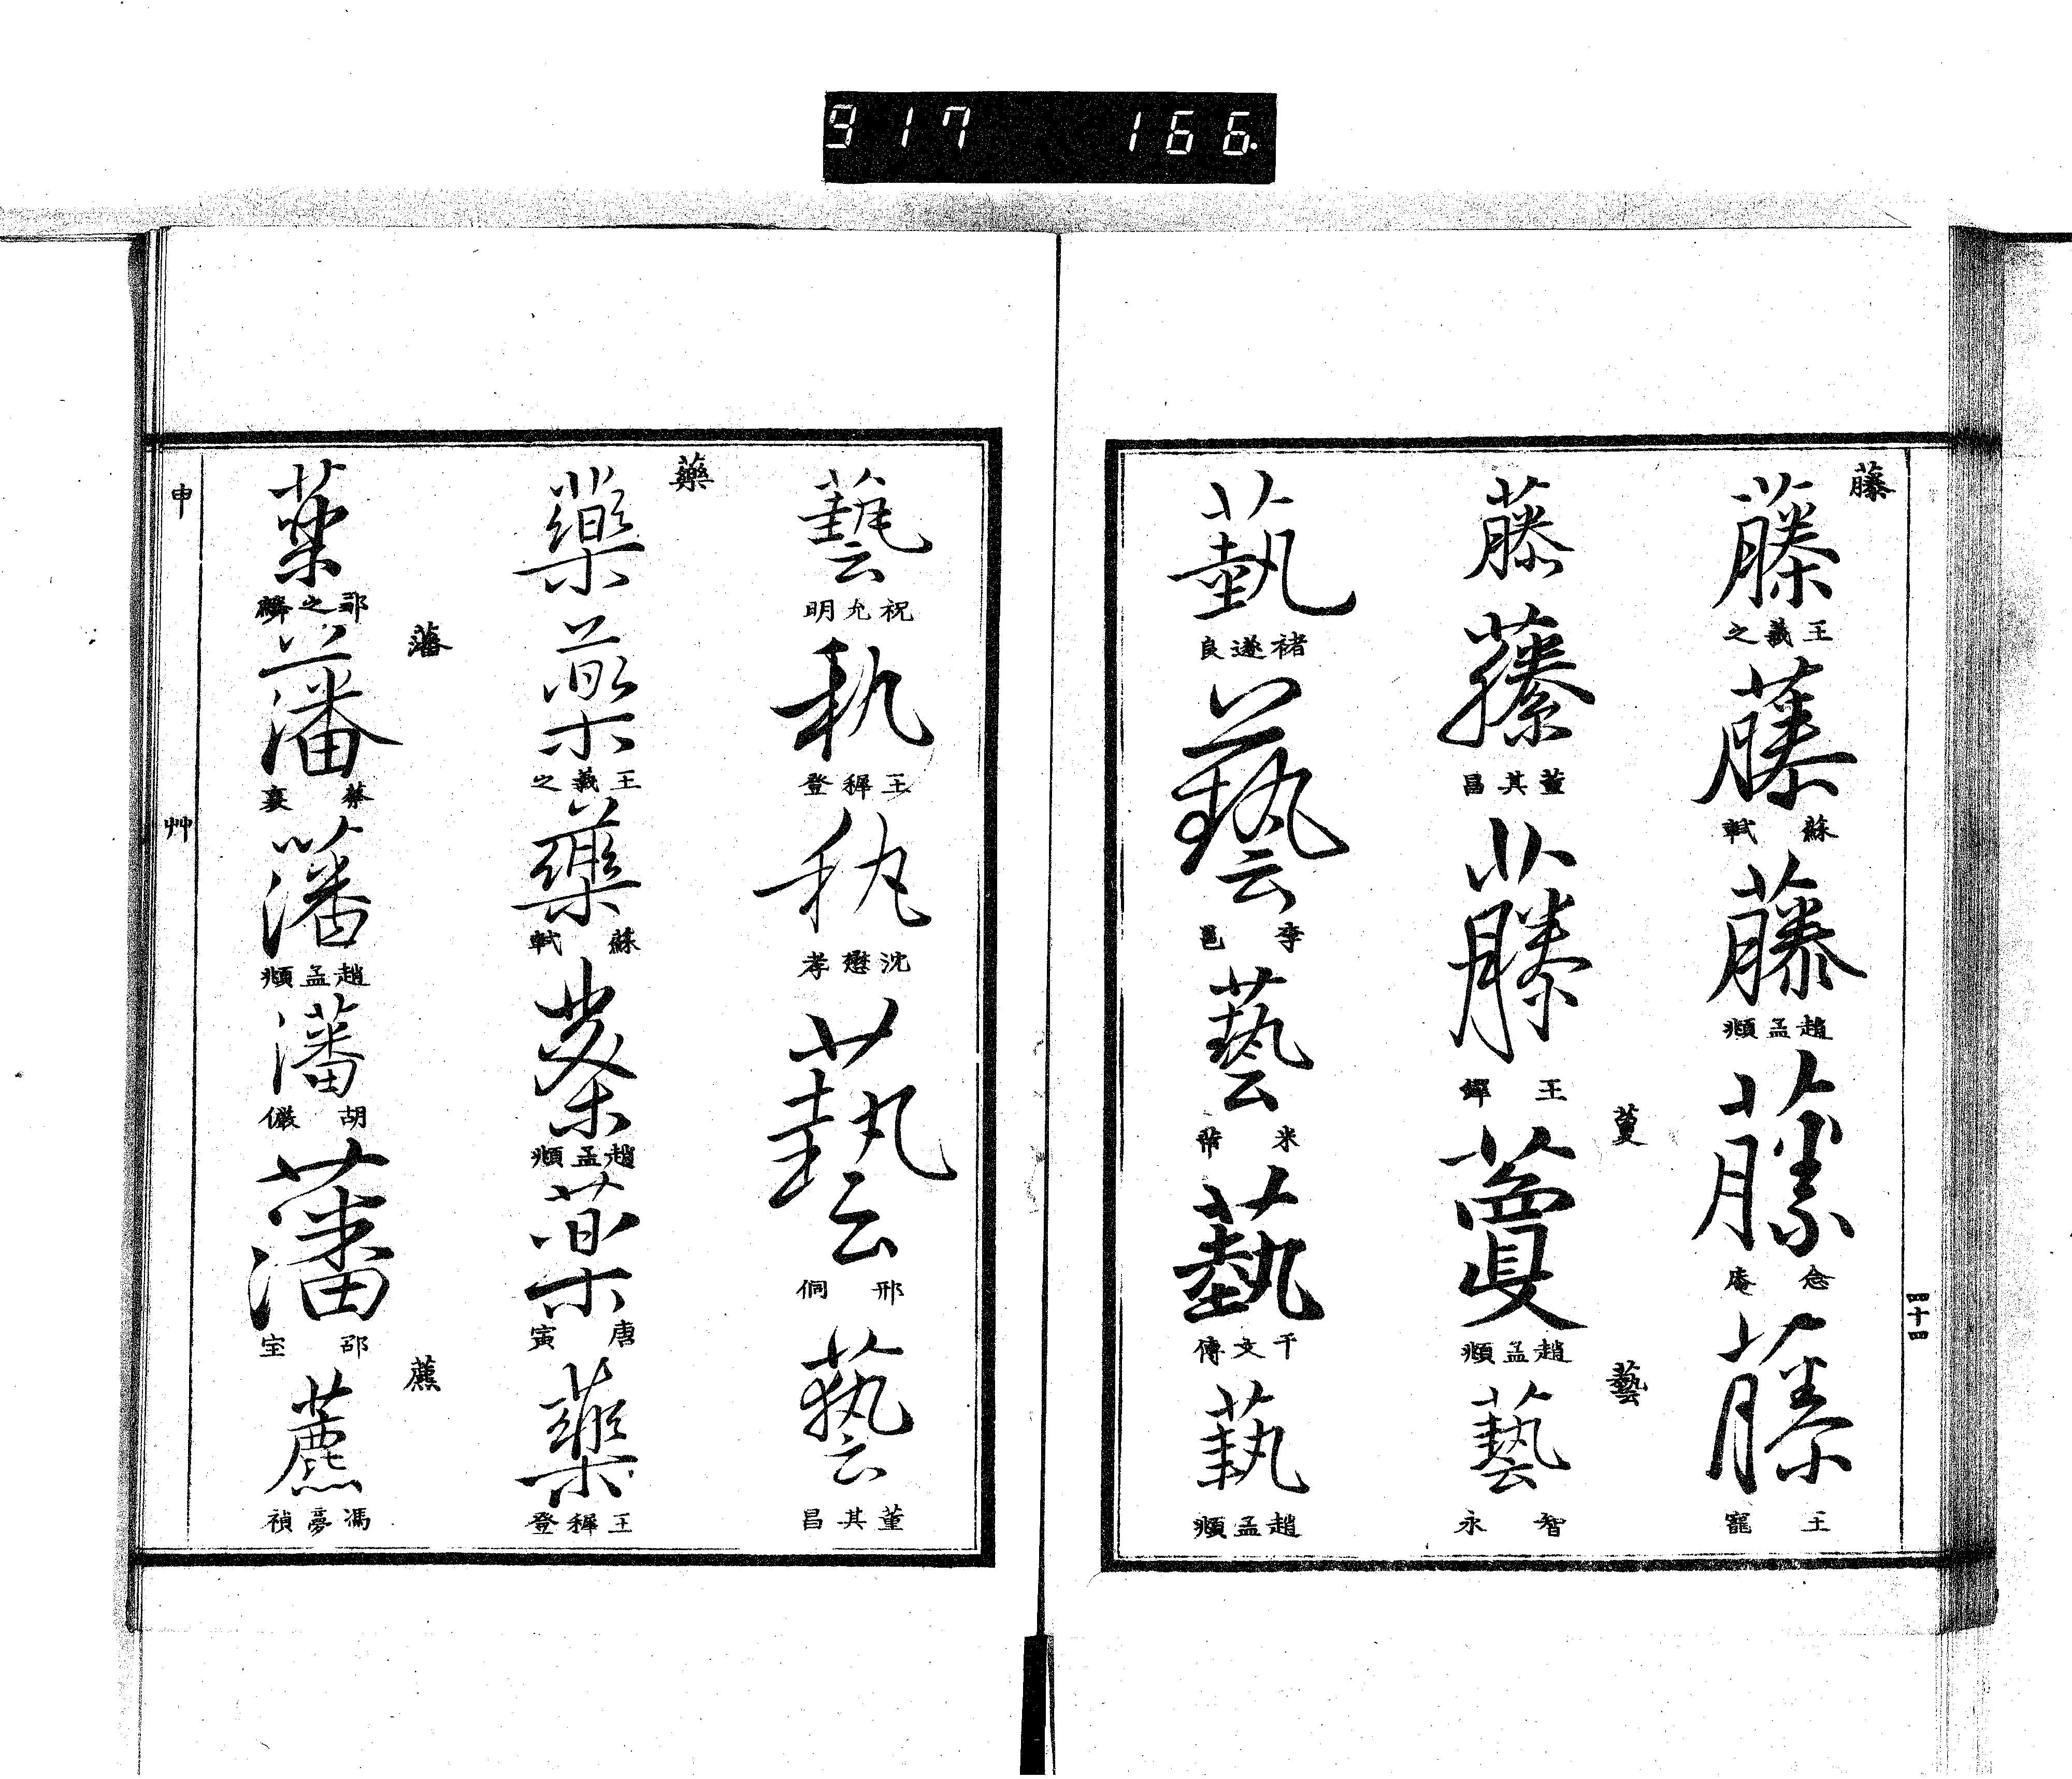 917 166.
四十四
藤
藤
王羲之
藤
蘇軾
藤
趙孟頫
藤
念庵
藤
王寵
藤
藤
董其昌
藤
王鐸
藑
藑
趙孟頫
藝
藝
智永
藝
褚遂良
藝
李邕
藝
米芾
藝
干文傳
藝
趙孟頫
藝
祝允明
執
王穉登
執
沈懋孝
藝
邢侗
藝
董其昌
藥
藥
藥
王羲之
藥
蘇軾
藥
趙孟頫
藥
唐寅
藥
王穉登
藥
之
藩
藩
蔡襄
藩
趙孟頫
藩
胡儼
藩
邵宝
藨
藨
馮夢禎
申
艸